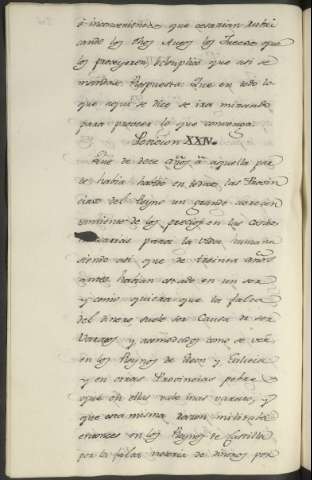 ó inconvenientes que cesarian Autori
cando los dhos los Jueces que
los proveyeron, Suplico que asi se
mandase. Respuesta. Que en todo lo
que aqui se dice se ira mirando
para proveer lo que convenga.
Peticion XXIV.
Que de doce años á aquella par
te habia habido en todas las Provin
cias del Reyno un grande encareci
miento de los precios en las cosas
necesarias para la vida humana
siendo asi que de treinta años
antes habian estado en un ser
y como quiera que la falta
del dinero suele ser Causa de ser
varatos y acomodados como se vee
en los Reynos de Leon y Galicia
y en otras Provincias pobres
que en ellas vale mas varato, y
que esta misma razon militaba
entonces en los Reynos de Castilla
por la falta notoria de dineros por